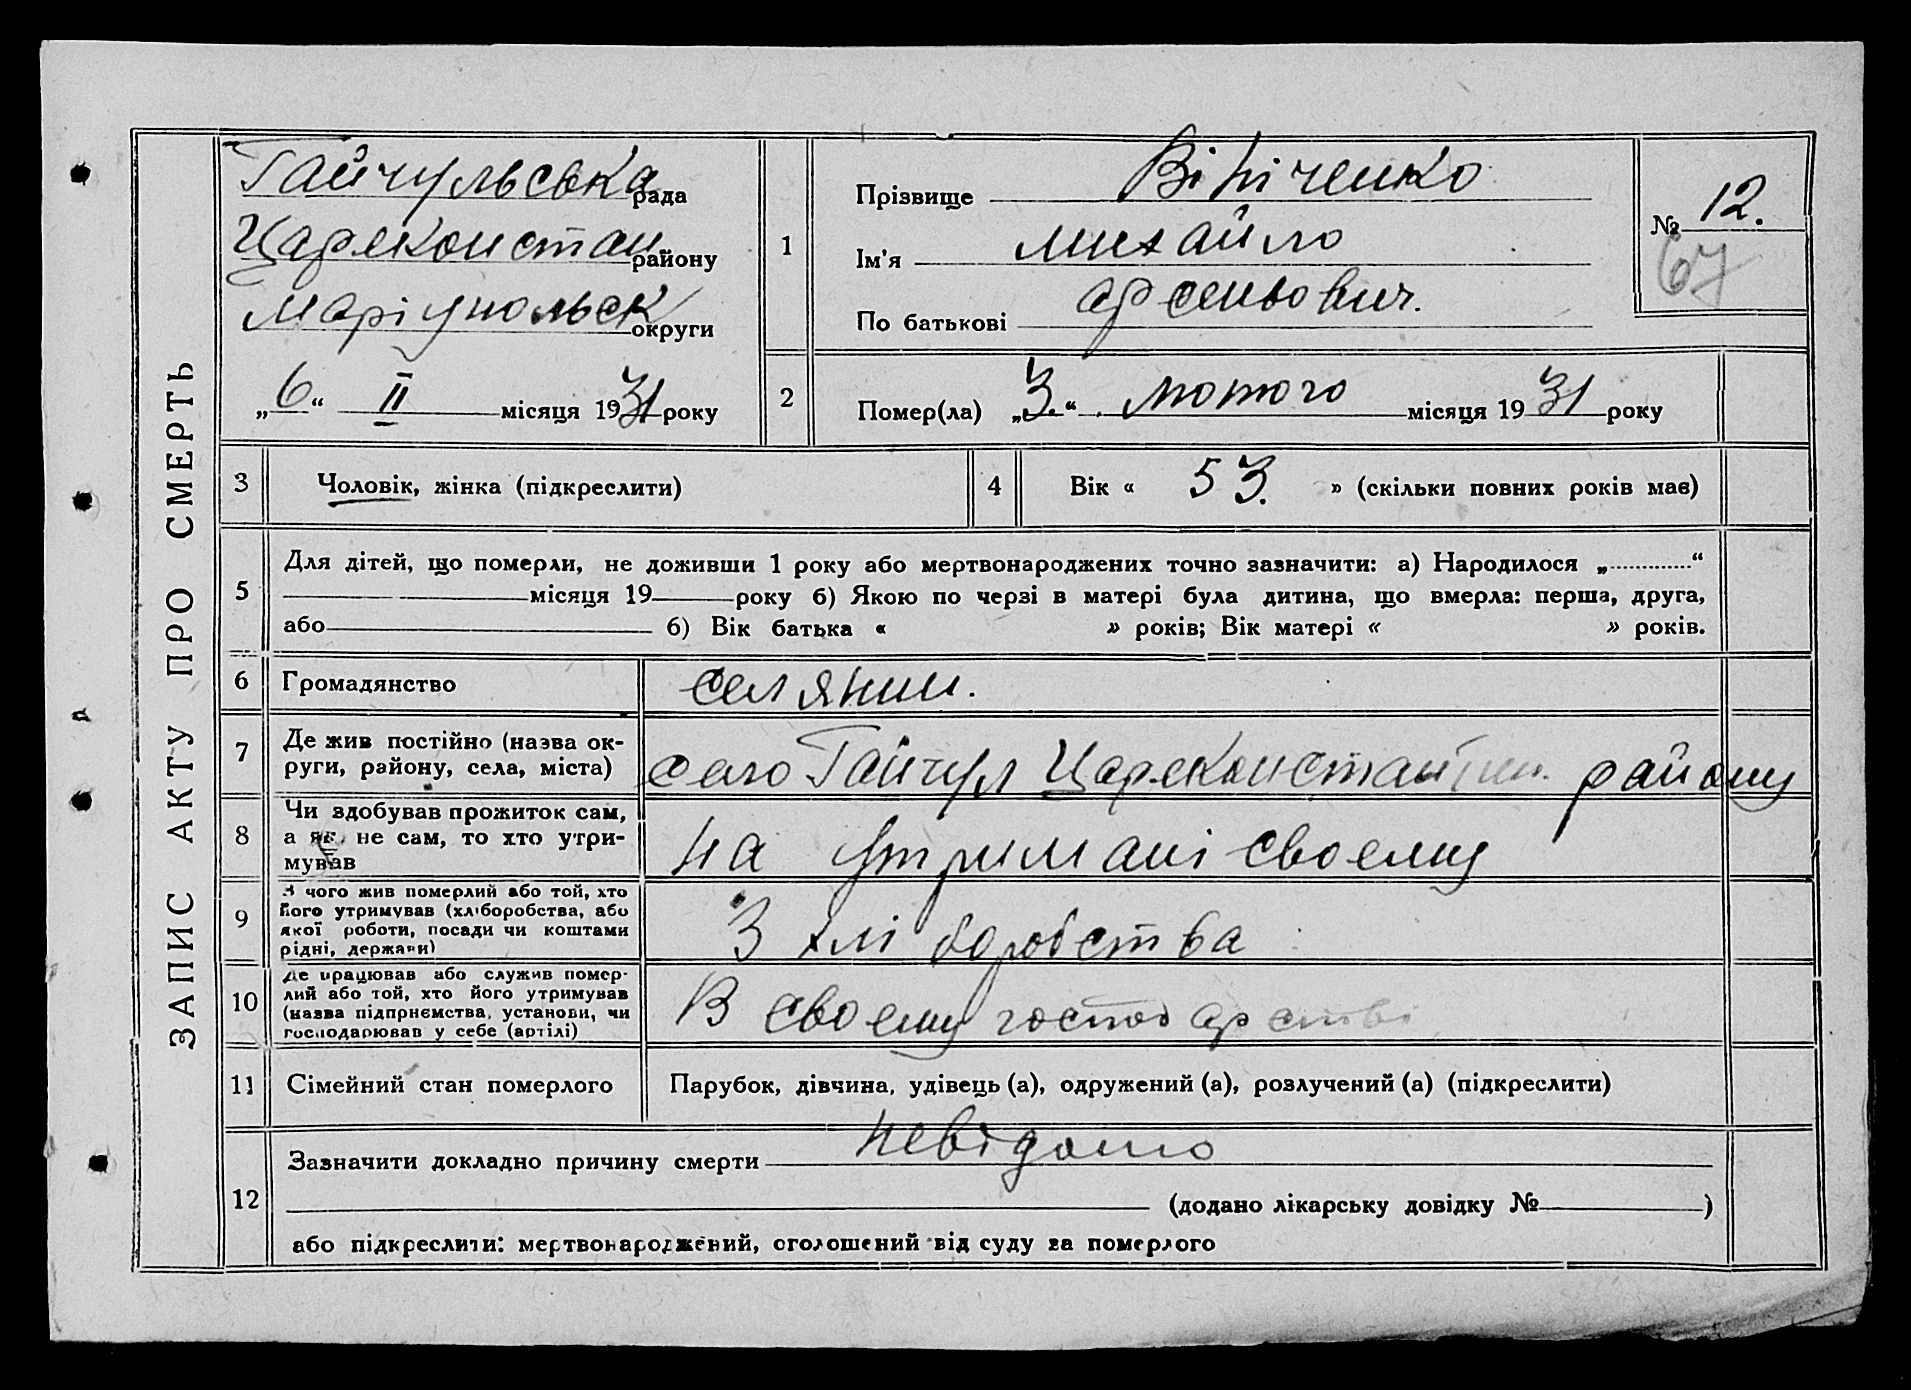 ЗАПИС АКТУ ПРО СМЕРТЬ
Гайчульська рада
Царекконстан району
Маріупольск округи
„6“ II місяця 1931 року
1
Прізвище Вініченко
Ім'я Михайло
По батькові Арсентович.
№ 12.
67
2
Помер(ла) „3.“ лютого місяця 1931 року
3
Чоловік, жінка (підкреслити)
4
Вік « 53. » (скільки повних років має)
5
Для дітей, що померли, не доживши 1 року або мертвонароджених точно зазначити: а) Народилося „ “
місяця 19 року б) Якою по черзі в матері була дитина, що вмерла: перша, друга,
або б) Вік батька « » років; Вік матері « » років.
6
Громадянство
селянин.
7
Де жив постійно (назва ок-
руги, району, села, міста)
село Гайчул Царекконстантин. району
8
Чи здобував прожиток сам,
а як не сам, то хто утри-
мував
на утримані своему
9
З чого жив померлий або той, хто
його утримував (хліборобства, або
якої роботи, посади чи коштами
рідні, держави)
З хліборобства
10
Де працював або служив помер-
лий або той, хто його утримував
(назва підприємства, установи, чи
господарював у себе (артілі)
В своему господарстві
11
Сімейний стан померлого
Парубок, дівчина, удівець (а), одружений (а), розлучений (а) (підкреслити)
12
Зазначити докладно причину смерти невідомо
(додано лікарську довідку № )
або підкреслити: мертвонароджений, оголошений від суду за померлого